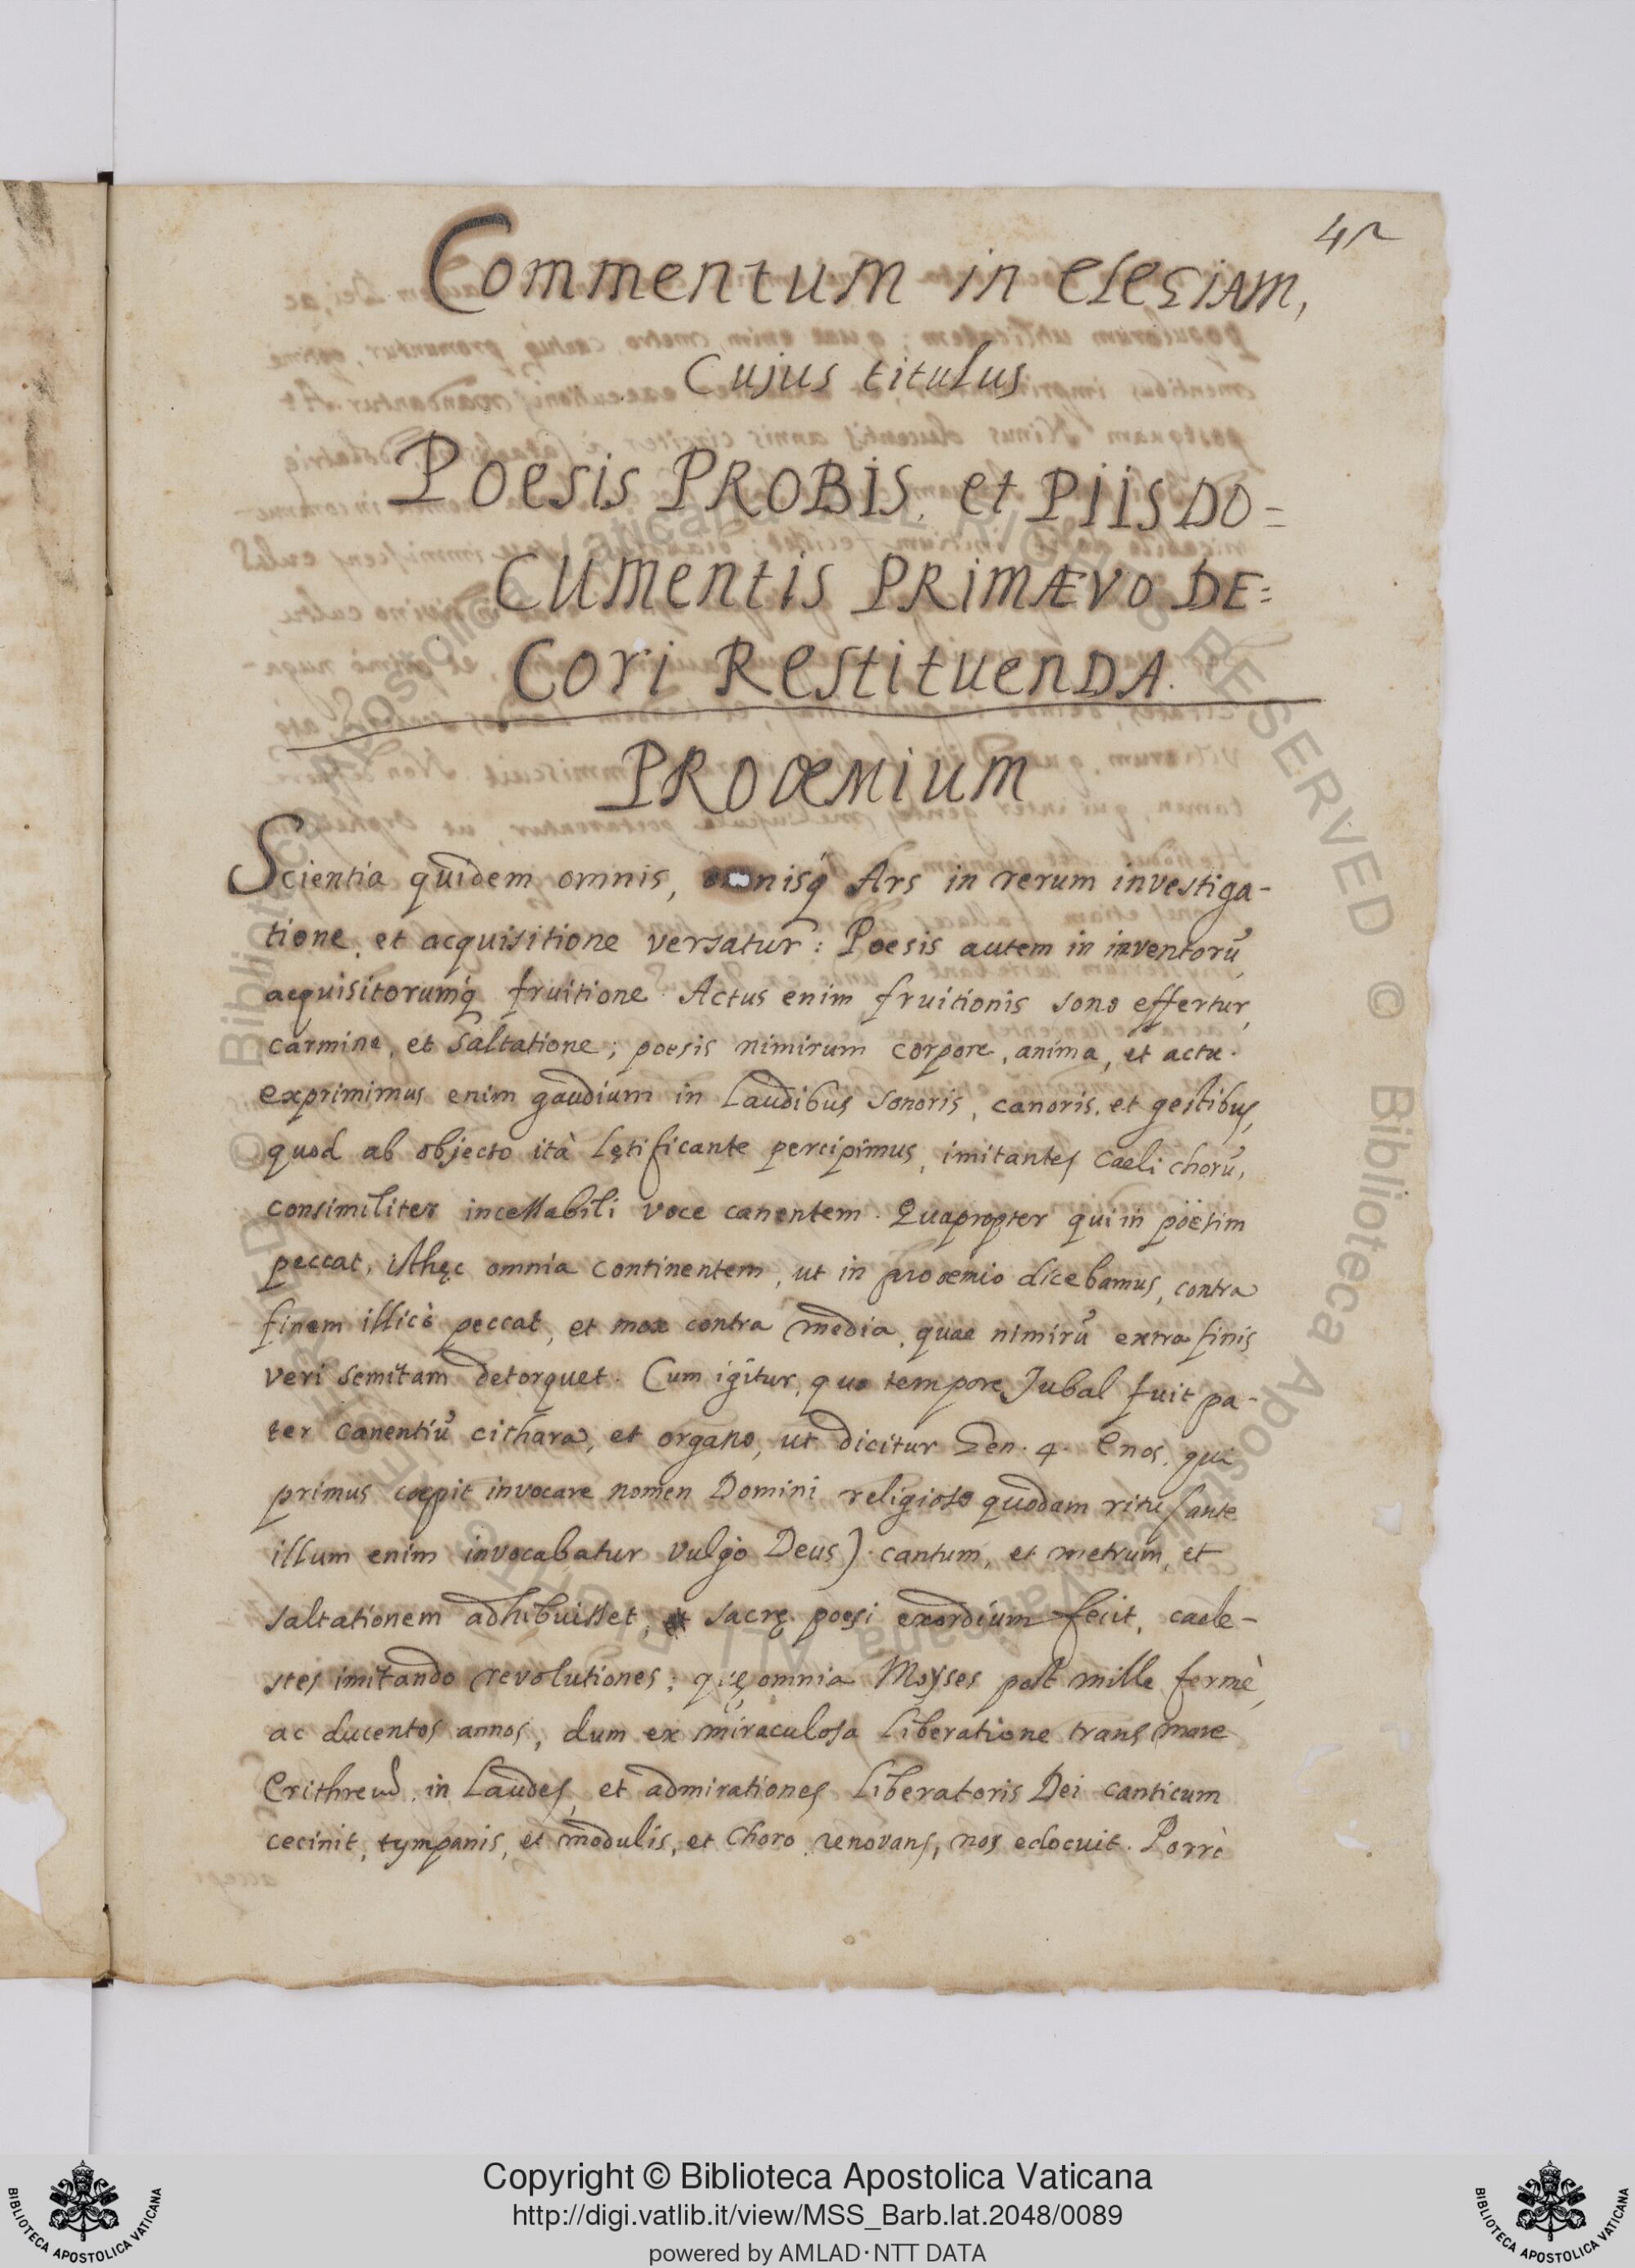 42
Commentum in elegiam,
Cujus titulus
Poesis PROBIS, et PIIS DO=
CUMentis PRIMÆVO DE=
Cori RestituenDA.
PROœMIUM
Scientia quidem omnis, omnisq́ Ars in rerum investiga-
tione, et acquisitione versatur: Poesis autem in inventorū,
acquisitorumq́ fruitione. Actus enim fruitionis sono effertur,
carmine, et saltatione; poesis nimirum corpore, anima, et actu.
exprimimus enim gaudium in Laudibus sonoris, canoris, et gestibus,
quod ab objecto ità lętificante percipimus, imitantes caeli chorū,
consimiliter incessabili voce canentem. Quapropter qui in poësim
peccat, hęc omnia continentem, ut in prooemio dicebamus, contra
finem illicò peccat, et mox contra media, quae nimirū extra finis
veri semitam detorquet. Cum igitur, quo tempore Jubal fuit pa-
ter canentiū cithara, et organo, ut dicitur Gen. 4. Enos, qui
primus coepit invocare nomen Domini religioso quodam ritu (ante
illum enim invocabatur vulgò Deus) cantum, et metrum, et
saltationem adhibuisset, sacrę poesi exordium fecit, caele-
stes imitando revolutiones; quę omnia Moyses post mille fermè,
ac ducentos annos, dum ex miraculosa liberatione trans mare
Erithreū, in Laudes, et admirationes Liberatoris Dei canticum
cecinit, tympanis, et modulis, et choro renovans, nos edocuit. Porrò
Copyright © Biblioteca Apostolica Vaticana
http://digi.vatlib.it/view/MSS_Barb.lat.2048/0089
powered by AMLAD·NTT DATA
BIBLIOTECA APOSTOLICA VATICANA
BIBLIOTECA APOSTOLICA VATICANA